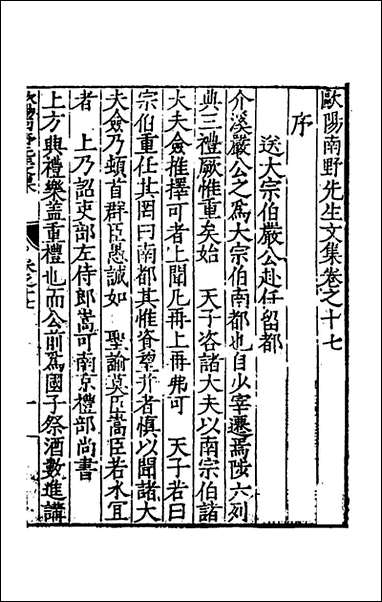 歐陽南野先生文集卷之十七
序
送大宗伯嚴公赴任留都
介溪嚴公之爲大宗伯南都也自少宰遷焉陟六列
典三禮厥惟重矣始　天子咨諸大夫以南宗伯諸
大夫僉推擇可者上聞凡再上再弗可　天子若曰
宗伯重任其罔曰南都其惟育㧞者愼以聞諸大
夫僉乃頓首群臣愚誠如　聖諭莫臣嵩臣若水宜
者　上乃詔吏部左侍郎嵩可南京禮部尚書
上方典禮樂盖重禮也而公前爲國子祭酒數進講